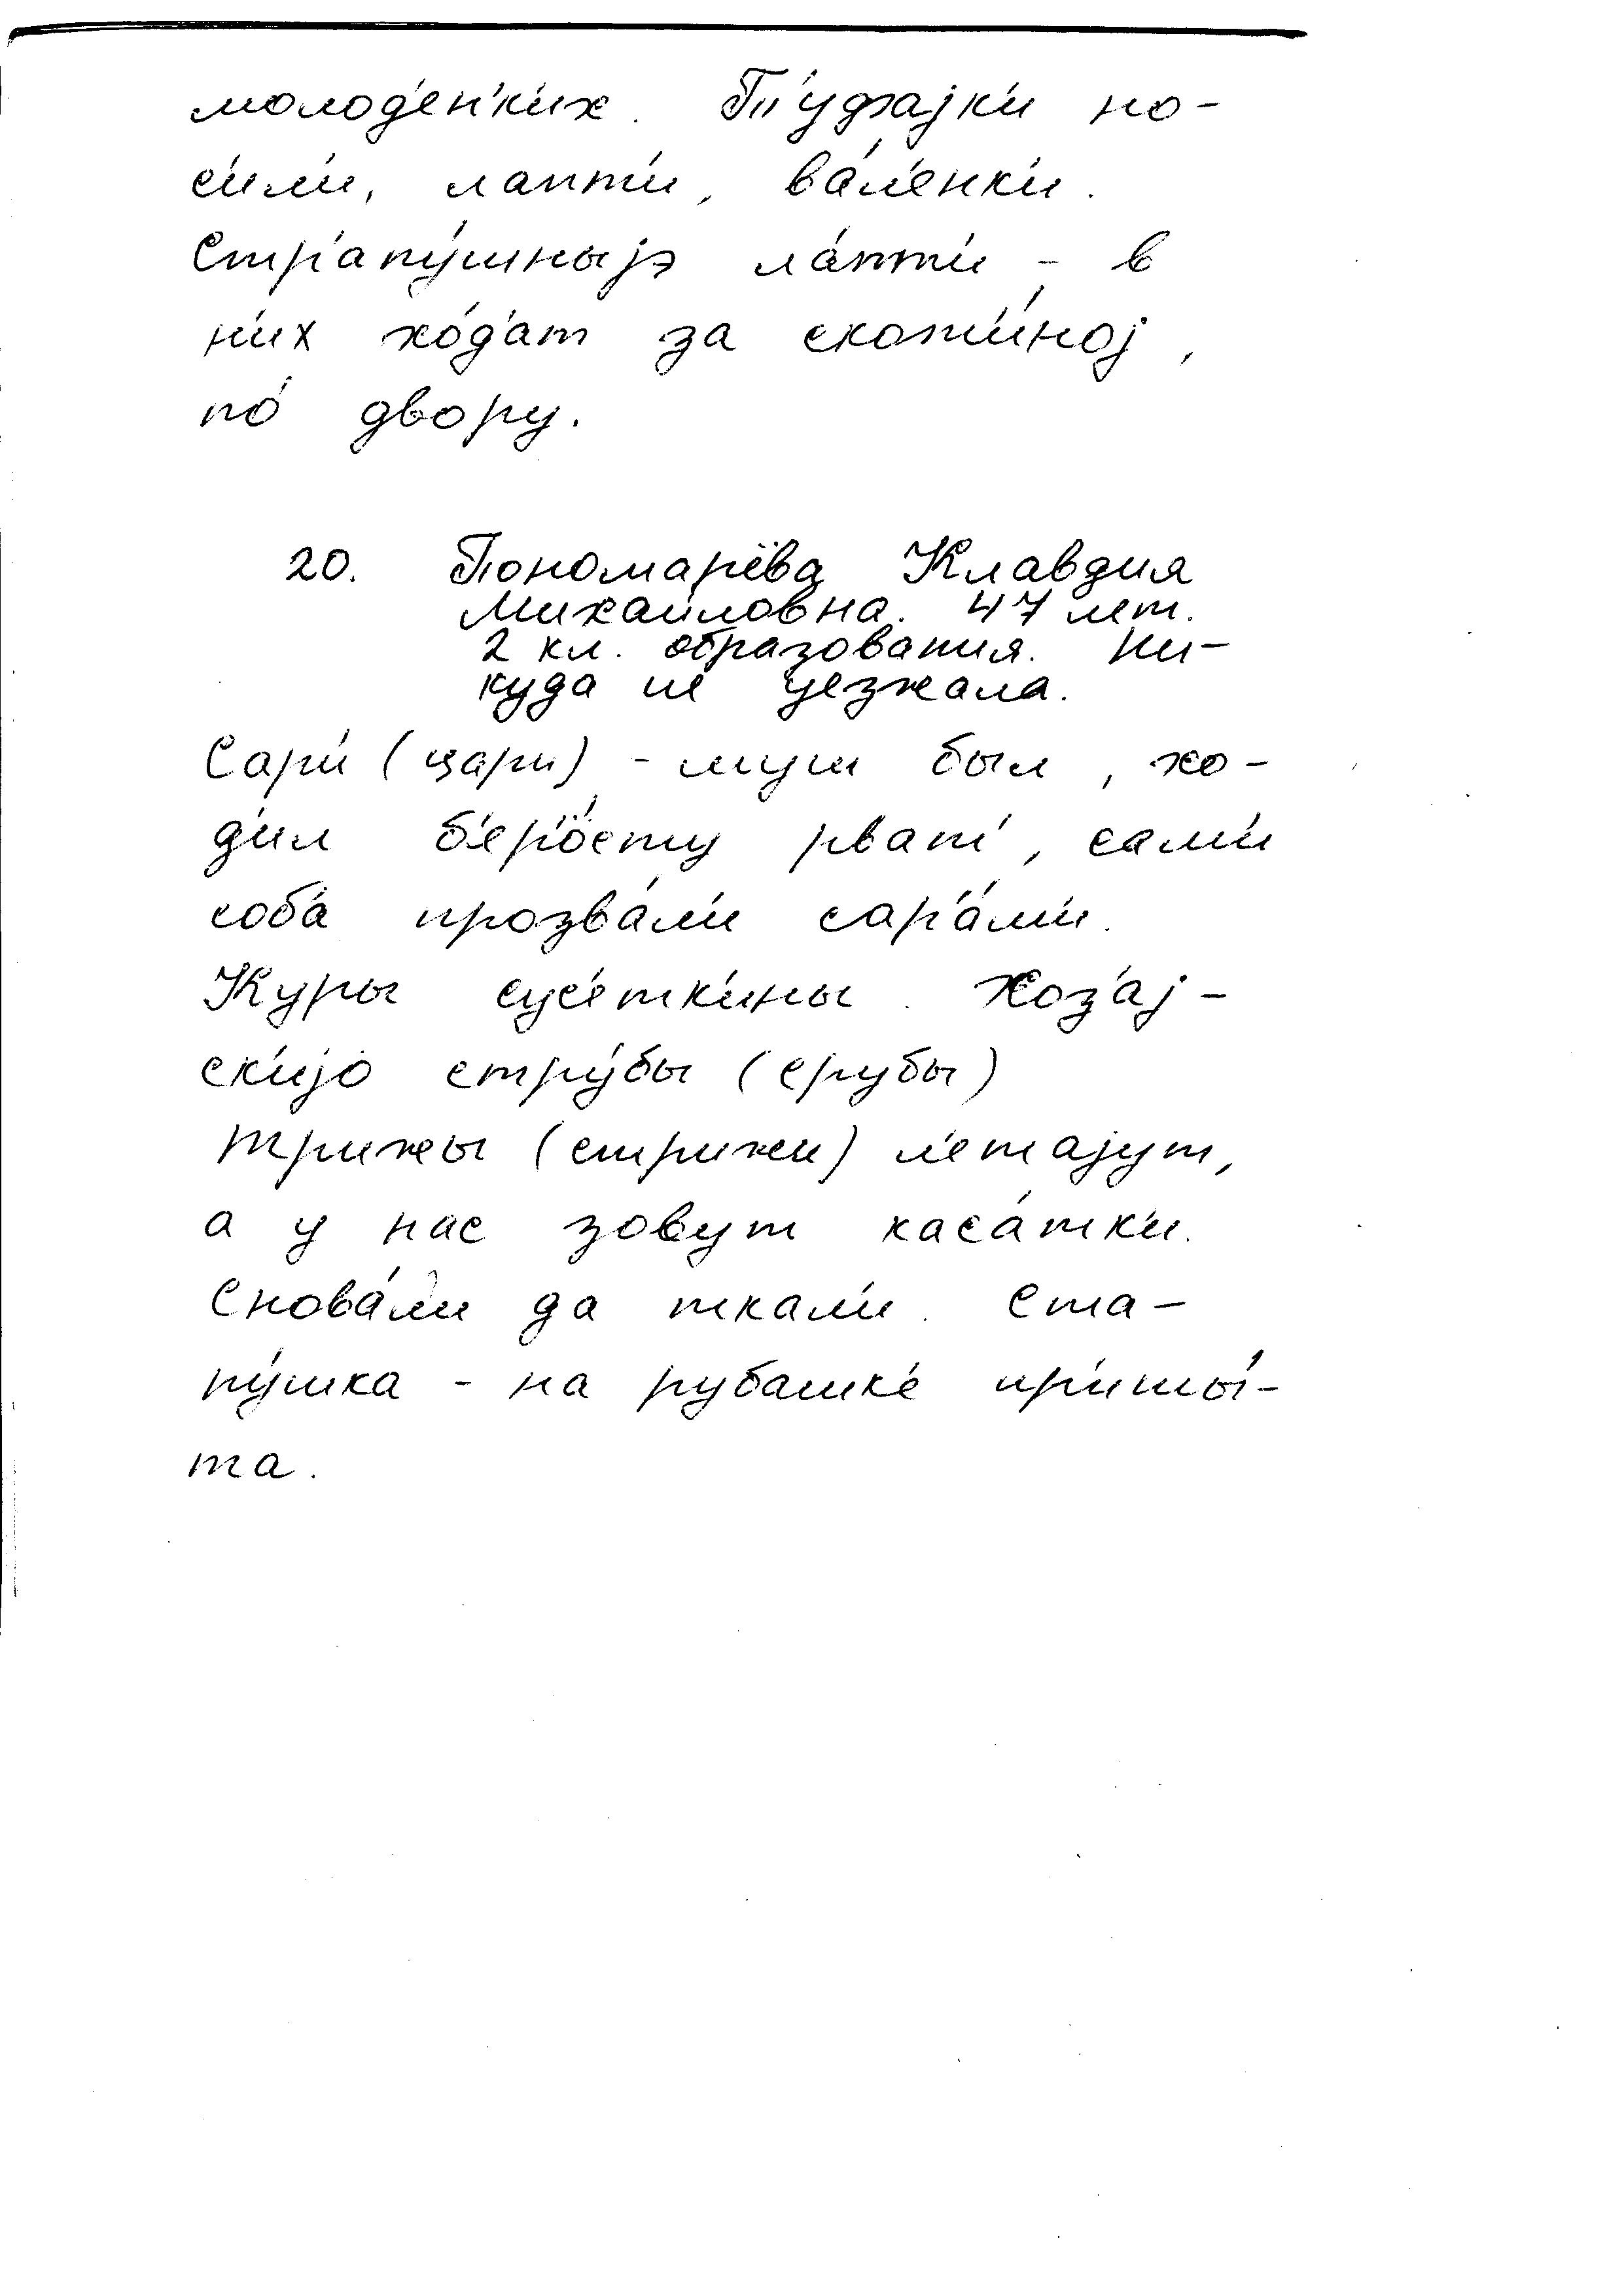 молод'ен'к'их. Т'уфајк'и но-
с'ил'и, лапт'и, ва́л'енк'и.
Стр'апу́шныјэ ла́пт'и - в
н'их хо́д'ат за скот'и́ној,
по́ двору.
20. Пономарёва Клавдия
Михайловна. 47 лет.
2 кл. образования. Ни-
куда не уезжала.
Сар'и (цари) - муш был, хо-
д'ил б'ер'о́сту рват', сам'и
соб'а прозва́л'и сар'а́м'и.
Куры сус'етк'ины. Хоз'ај-
ск'ијо стру́бы (срубы)
Трижы (стрижи) л'етајут,
а у нас зовут каса́тк'и.
Снова́л'и да ткал'и. Ста-
ну́шка - на рубашк'е пр'ишы́-
та.